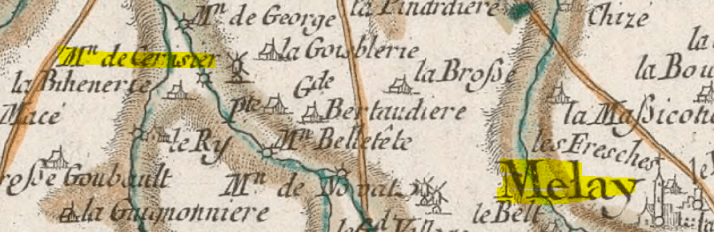 Mⁿ de George
la Pinardiere
Chizé
Mⁿ de Cernsier
la Gousblerie
la
la Bihenerie
Gde
la Brosse
la Bou
Macé
Pte
Bertaudiere
la Massicotie
le Ry
Mⁿ Belletête
les Fresches
resse Goubault
Mⁿ de
Melay
la Guignonniere
le Belt